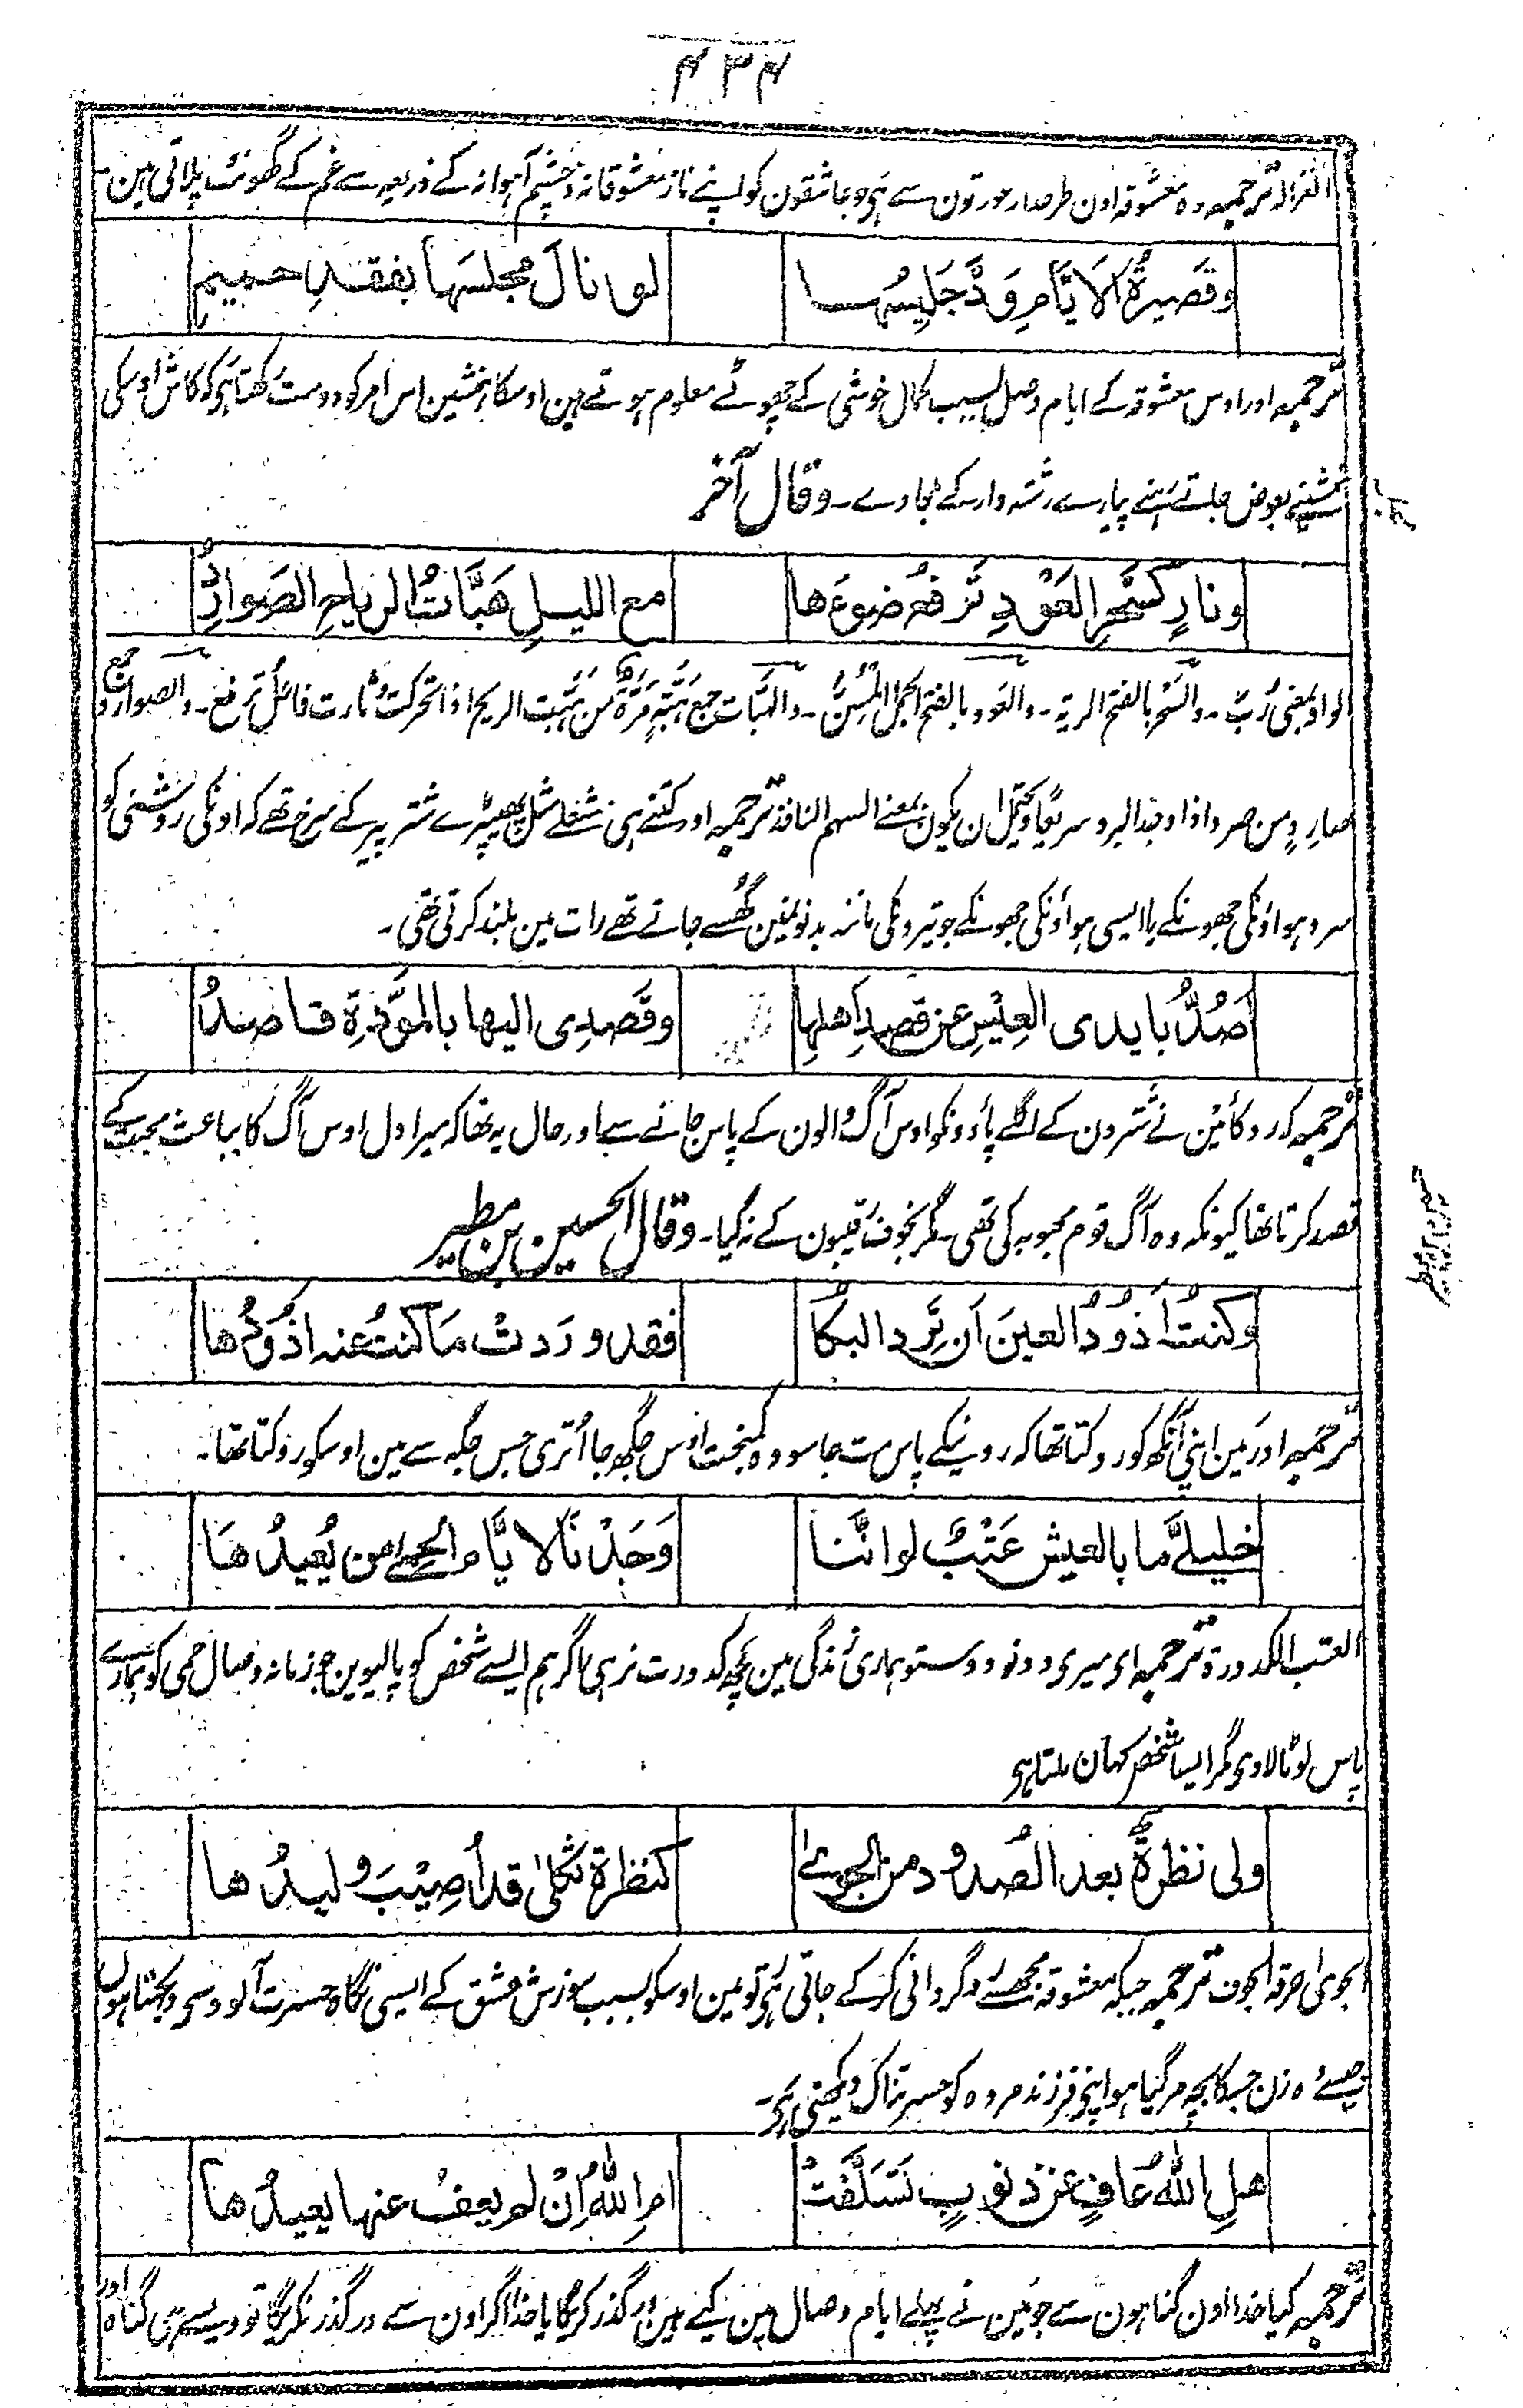 ۴۳۶
الغزالہ ترجمہ وہ معشوقہ اون طرصدار عورتون سے ہی جو عاشقون کو اپنے ناز معشوقانہ و چشم آہوانہ کے ذریعہ سے غم کے گھونٹ پلاتی ہین۔
وقَصيرةُ الاَيَّامِ وَدَّ جَلِيسُها لو نالَ مجلسَها بفقدِ حميمِ
ترجمہ اور اوس معشوقہ کے ایام وصل بسبب کمال خوشی کے چھوٹے معلوم ہوتے ہین اوسکا ہمنشین اس امر کو دوست رکھتا ہی کہ کاش اوسکی
ہمنشینے بعوض جلتے اپنے پیارے رشتہ دار کے ملجاوے۔ وقال آخر
ونارٍ كسَحْرِ العَوْدِ تَرفعُ ضوءَها مع الليلِ هَبَّاتُ الرياحِ الصَوارِدُ
الواو بمعنی رُبَّ۔ والسَّحْر بالفتح الریۃ۔ والعَود بالفتح الجمل المُسِنُّ۔ والہَبّات جمع ہَبَّۃٍ مَرَّۃٌ من ہَبَّت الریح اذا تحرکت وثارت فاعل ترفع۔ والصوارد جمع
صارِدٍ من صرد اذا وجد البرد سریعًا ویحتمل ان یکون بمعنے السہم النافذ ترجمہ اور کتنے ہی شعلے مثل پھیپڑے شتر پیر کے سرخ تھے کہ اونکی روشنی کو
سرد ہواؤنکی جھونکے یا ایسی ہواؤنکی جھونکے جو تیرونکی مانند بدنونمین گھسے جاتے تھے رات مین بلند کرتی تھی۔
اَصُدُّ بايدى العِيْسِ عن قصدِ اهلِها وقَصدِى اليها بالموَدَّةِ قاصدُ
ترجمہ کہ روکا مین نے شترون کے اگلے پاؤونکو اوس آگ والون کے پاس جانے سے اور حال یہ تھا کہ میرا دل اوس آگ کا بباعث محبت کے
قصد کرتا تھا کیونکہ وہ آگ قوم محبوبہ کی تھی۔ مگر بخوف رقیبون کے نہ گیا۔ وقال الحسين بن مطير
وكنتُ اَذُوْدُ العينَ اَن تَرِدَ البُكا فقد وردتْ مَا كنتُ عنه اَذُوْدُها
ترجمہ اور مین اپنی آنکھ کو روکتا تھا کہ رونیکے پاس مت جا سو وہ کمبخت اوس جگھ جا اُتری جس جگہ سے مین اوسکو روکتا تھا۔
خليلَىَّ ما بالعيش عَتْبٌ لو انَّنا وَجَدْنَا لاِيَّامِ الحِمىٰ من يُعيدُها
العتب الکدورۃ ترجمہ اے میرے دونو دوستو ہماری زندگی مین کچھ کدورت نرہی اگر ہم ایسے شخص کو پالیوین جو زمانہ وصال حمی کو ہمارے
پاس لوٹا لاوے مگر ایسا شخص کہان ملتا ہی
ولى نظرةٌ بعد الصُدودِ من الجوىٰ كنظرةِ ثكلىٰ قد اُصِيْبَ وليدُها
الجوی حرقۃ الجوف ترجمہ جبکہ معشوقہ مجھسے روگردانی کرکے جاتی ہی تو مین اوسکو بسبب سوزش عشق کے ایسی نگاہ حسرت آلود سے دیکھتا ہون
جیسے وہ زن جسکا بچہ مرگیا ہو اپنے فرزند مردہ کو حسرتناک دیکھتی ہی۔
هلِ اللّٰهُ عَافٍ عن ذنوبٍ تَسَلَّفَتْ امِ اللّٰهُ اِنْ لم يعفُ عنها يعيدُها
ترجمہ کیا خدا اون گناہون سے جو مین نے پہلے ایام وصال مین کیے ہین در گذر کریگا یا خدا اگر اون سے درگذر نکریگا تو ویسے ہی گناہ اور